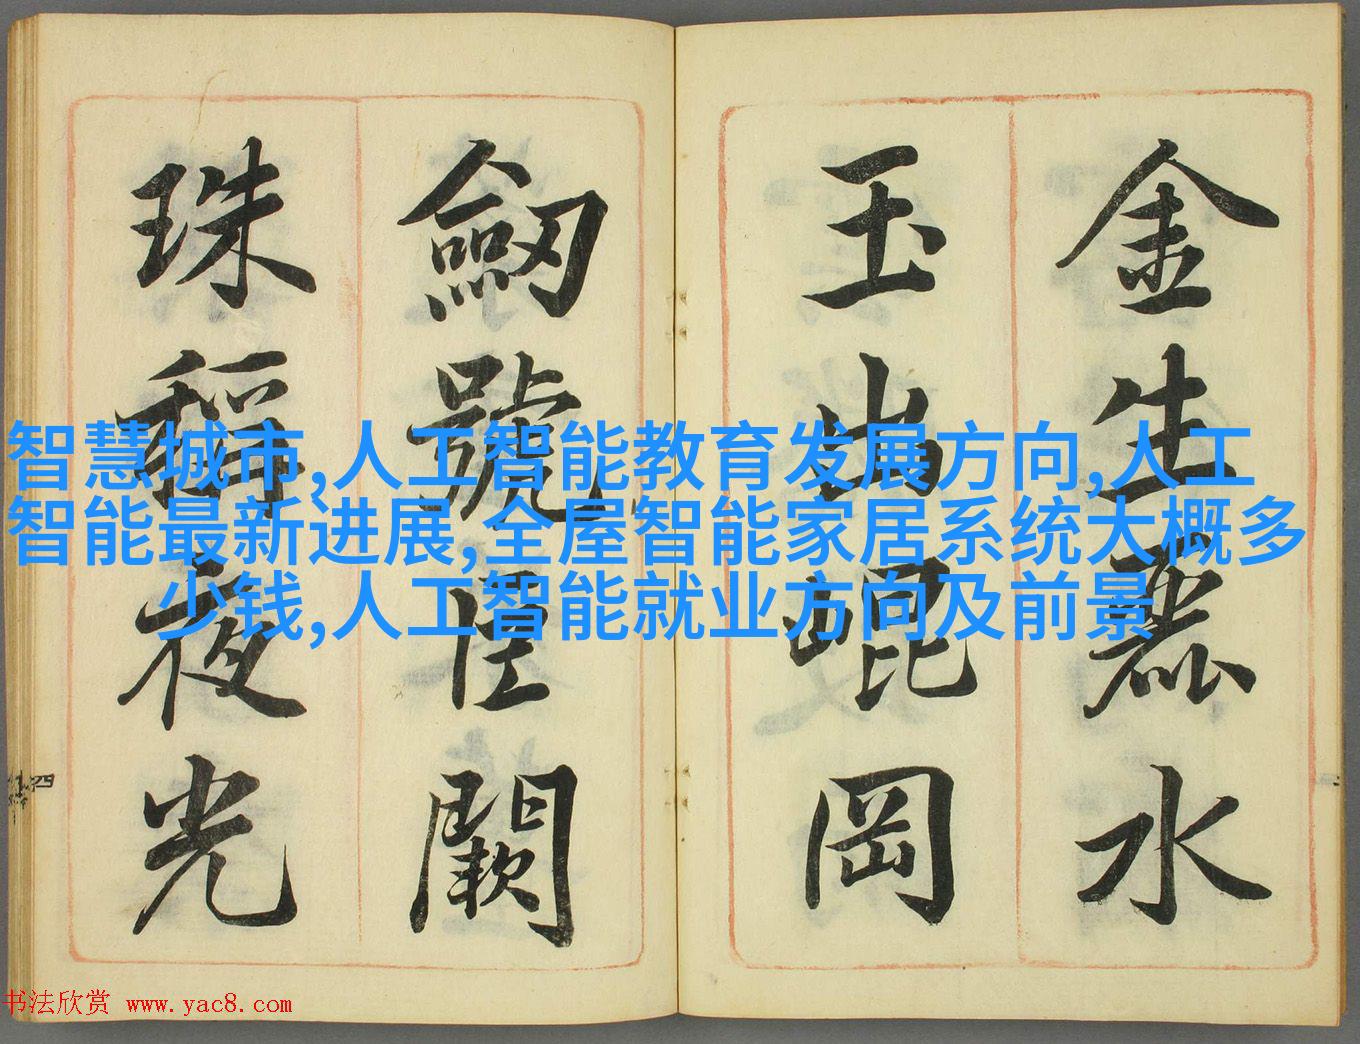 金生麗水
玉出崐岡
劒號巨闕
珠稱夜光
智慧城市,人工智能教育发展方向,人工
智能最新进展,全屋智能家居系统大概多
少钱,人工智能就业方向及前景
四
书法欣赏 www.yac8.com